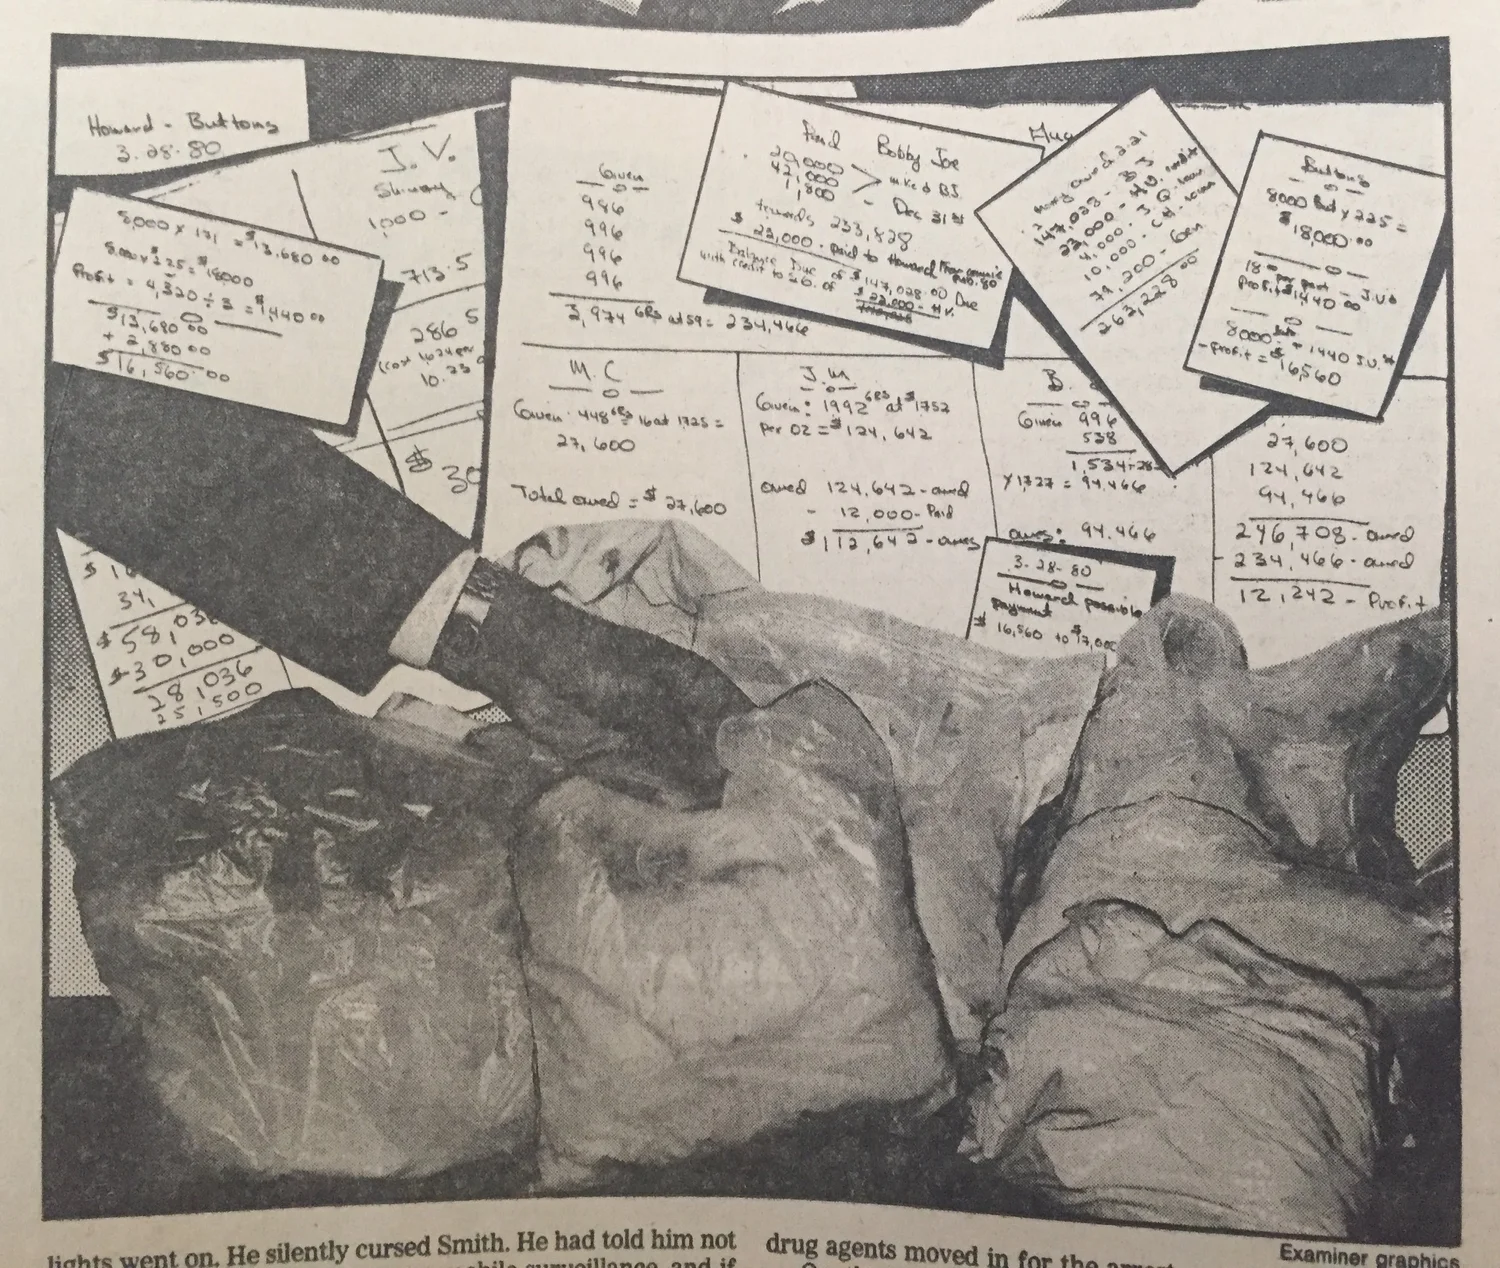 Howard - Buttons
3.28.80
J.V.
1,000 -
713.5
286 5
10.23
$ 30
8,000 x 171 = $13,680 00
Profit = 4,320 ÷ 3 = $1,440 00
$13,680 00
+ 2,880 00
$16,560 00
34,
$ 58,036
$ 30,000
281036
251500
Given
986
996
996
996
3,974 GRS at 59 = 234,466
Paid Bobby Joe
20,000
42,000
1,800 - Dec 31st
towards 233,828
$ 23,000 - paid to Howard From
Balance Due of $147,028.00 Due
with credit to of $22,000 - H.V.
money owed 2-21
147,028 - B J
22,000 - H.V. credit
4,000 - J.G. loan
10,000 - C.H. loan
79,200 - Gen
262,228 00
Buttons
8000 But x 225 =
$18,000.00
18 00 per part - J.V.
Profit $1440 00
8000 + 1440 J.V.
- profit = $16,560
M.C
Given 448 GRS 16 at 1725 =
27,600
Total owed = $27,600
J.M.
Given: 1992 GRS at $1752
per oz = $124,642
owed 124,642 - owed
- 12,000 - Paid
$112,642 - owes
B.
Given 996
538
1,534 ÷ 28
x 1727 = 94,466
owes: 94,466
27,600
124,642
94,466
246,708 - owed
- 234,466 - owed
12,242 - Profit
3-28-80
Howard possible
payment
$ 16,560 to $17,000
lights went on. He silently cursed Smith. He had told him not
surveillance, and if
drug agents moved in for the arrest
Examiner graphics